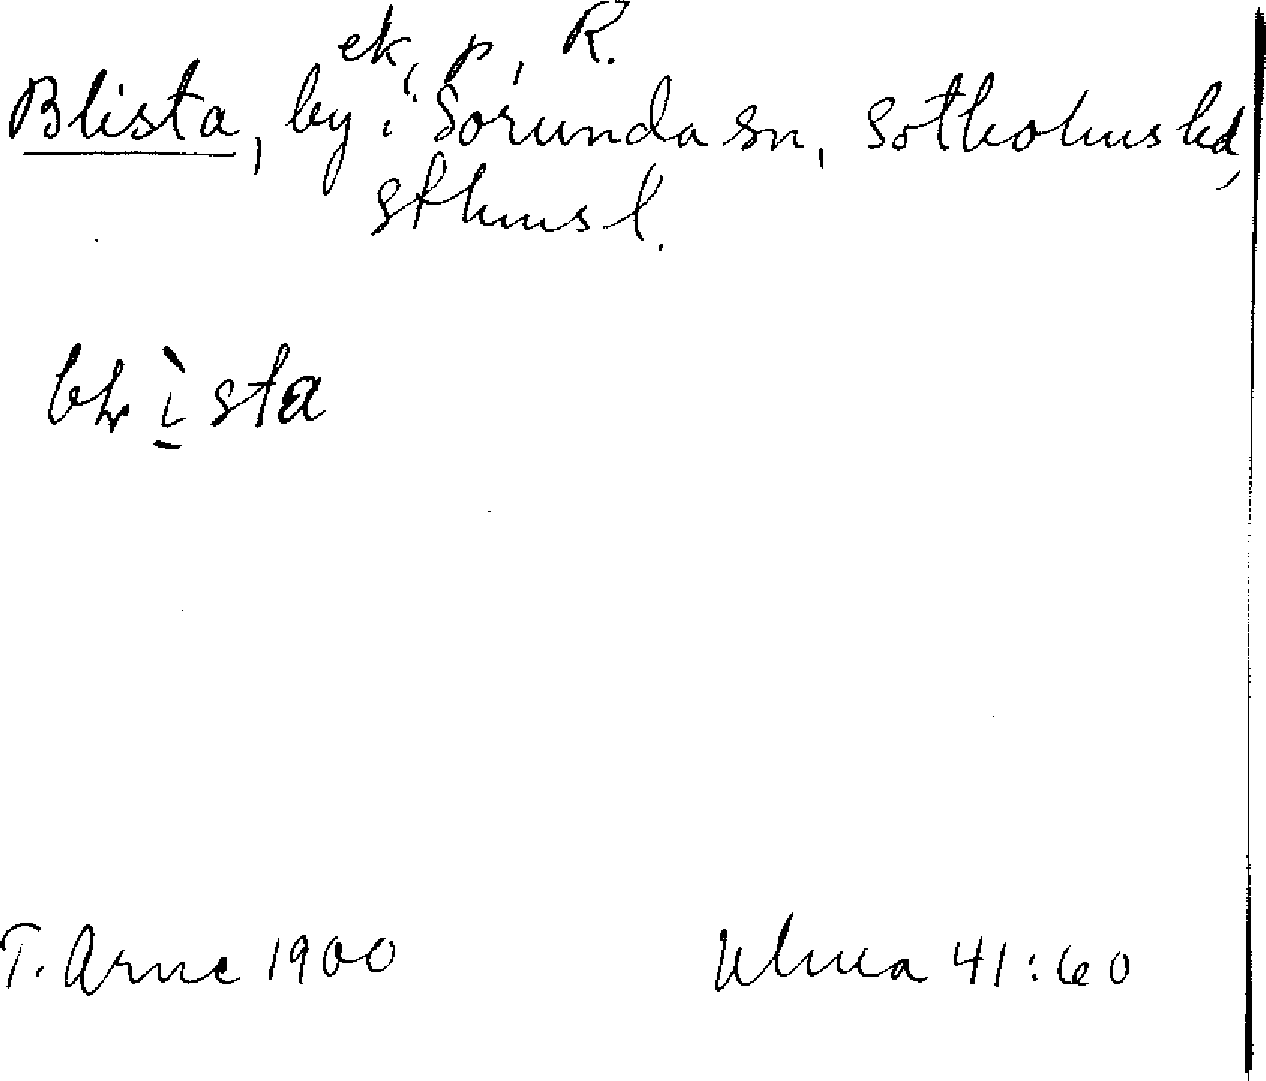 ek, p, R.
Blista, by i Sorunda sn, Sotholms hd,
Sthms l.
blista
T. Arne 1900 Ulma 41:60